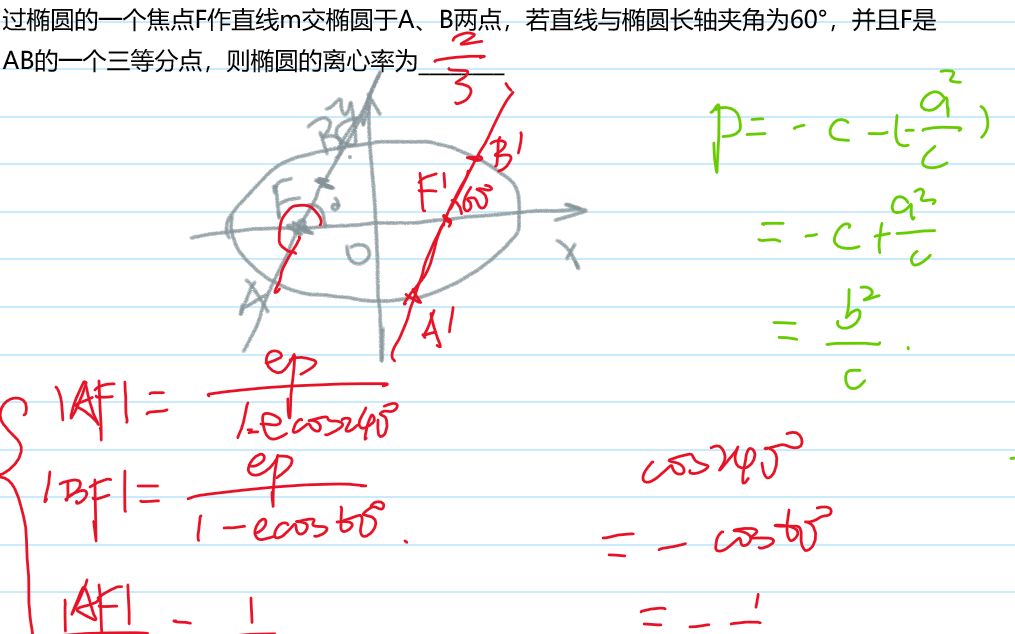 过椭圆的一个焦点F作直线m交椭圆于A、B两点，若直线与椭圆长轴夹角为60°，并且F是
AB的一个三等分点，则椭圆的离心率为________
2/3
y
B
B'
F
F'
60°
O
x
A
A'
P = -c-(-a²/c)
= -c+a²/c
= b²/c .
|AF| = ep/(1-ecos240°)
|BF| = ep/(1-ecos60°) .
cos240°
= - cos60°
|AF|